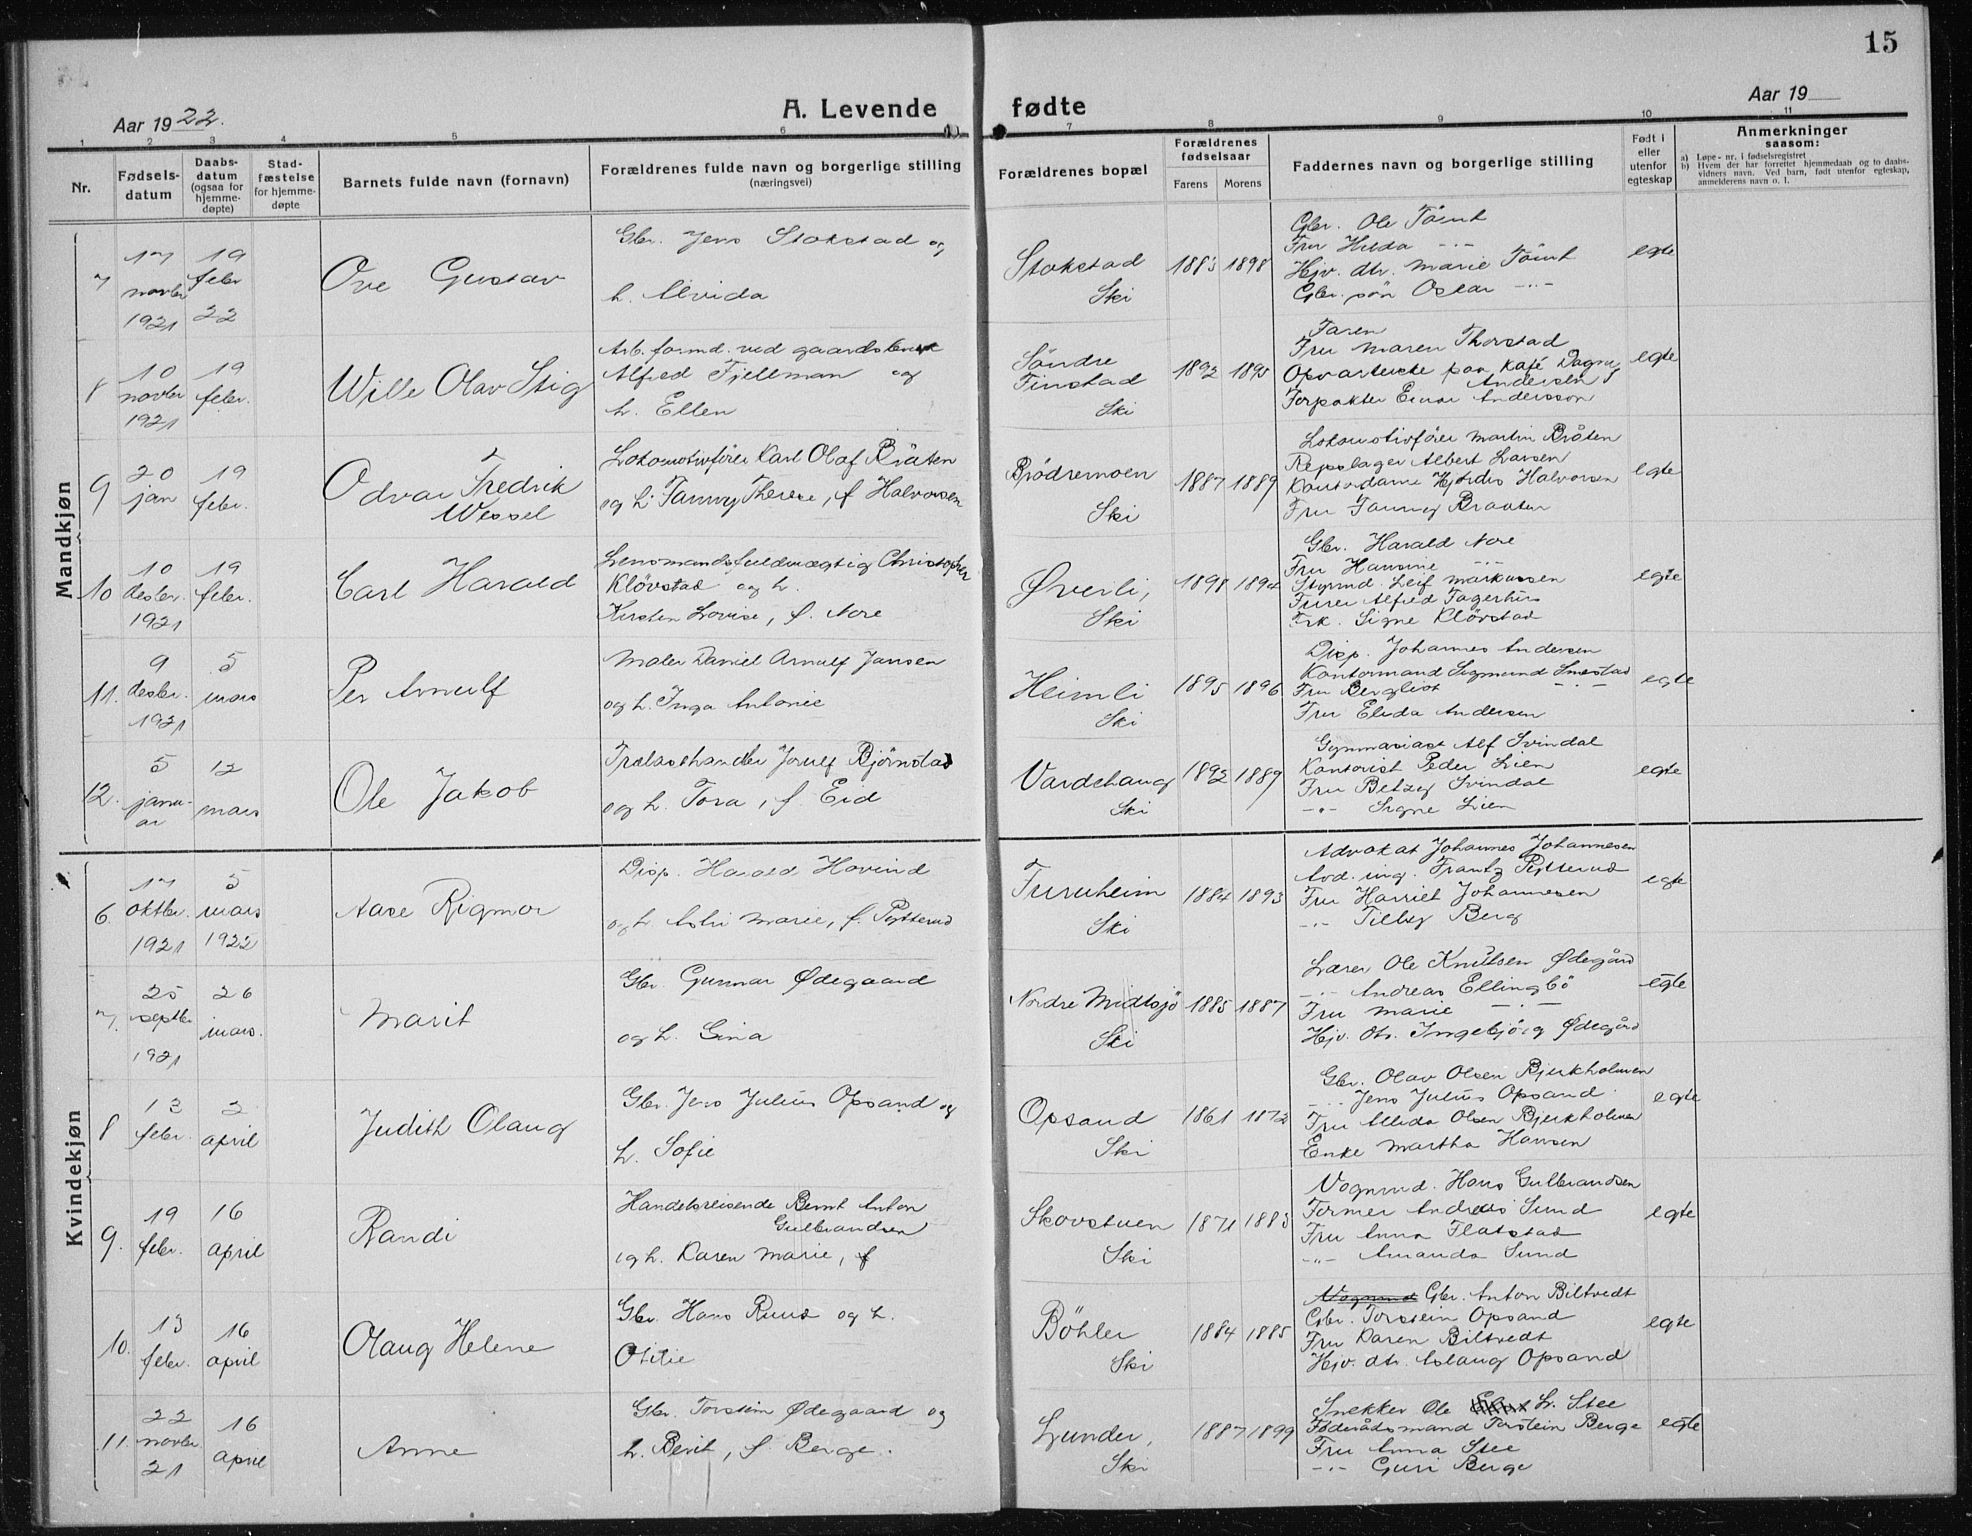 15
Aar 1922.
A. Levende fødte
Aar 19
1 2 3 4 5 6 7 8 9 10 11
Nr.
Fødsels-
datum
Daabs-
datum
(ogsaa for
hjemme-
døpte)
Stad-
fæstelse
for hjemme-
døpte
Barnets fulde navn (fornavn)
Forældrenes fulde navn og borgerlige stilling
(næringsvei)
Forældrenes bopæl
Forældrenes
fødselsaar
Farens Morens
Faddernes navn og borgerlige stilling
Født i
eller
utenfor
egteskap
Anmerkninger
saasom:
a) Løpe-nr. i fødselsregistret
b) Hvem der har forrettet hjemmedaab og to daabs-
vidners navn. Ved barn, født utenfor egteskap,
anmelderens navn o. l.
Mandkjøn
7
17
novbr
1921
19
febr
22
Ove Gustav
Gbr. Jens Stokstad og
h. Alvida
Stokstad
Ski
1883 1898
Gbr. Ole Tömt
Fru Hilda -"-
Hjv. dtr. Marie Tömt
Gbr. sön Oskar -"-
egte
8
10
novbr
1921
19
febr.
Wille Olav Stig
Arb. formd. ved gaardsbruk
Alfred Fjellman og
h. Ellen
Söndre
Finstad
Ski
1892 1895
Faren
Fru Maren Thorstad
Opvarterske paa Kafé Dagny
Andersen
Forpakter Einar Andersson
egte
9
20
jan
19
febr.
Odvar Fredrik
Wessel
Lokomotivförer Karl Olaf Bråten
og h. Fanny Therese, f. Halvorsen
Brödremoen
Ski
1887 1889
Lokomotivförer Martin Bråten
Repslager Albert Larsen
Kontordame Hjördis Halvorsen
Fru Fanny Braaten
egte
10
10
desbr.
1921
19
febr.
Carl Harald
Lensmandsfuldmægtig Christopher
Klövstad og h.
Kirsten Lovise, f. Nore
Øverli,
Ski
1898 1894
Gbr. Harald Nore
Fru Hansine -"-
Styrmd. Leif Markussen
Furer Alfred Fagerhus
Frk. Signe Klövstad
egte
11.
9
desbr.
1921
5
mars
Per Arnulf
Maler Daniel Arnulf Jansen
og h. Inga Antonie
Heimli
Ski
1895 1896
Disp. Johannes Andersen
Kontormand Sigmund Smestad
Fru Bergliot -"-
Fru Elida Andersen
egte
12.
5
janu-
ar
12
mars
Ole Jakob
Trælasthandler Jorulf Bjørnstad
og h. Tora, f. Eid
Vardehaug
Ski
1892 1889
Gymnasiast Alf Svindal
Kontorist Peder Lien
Fru Betzy Svindal
-"- Signe Lien
egte
Kvindekjøn
6.
17
oktbr.
1921
5
mars
1922
Aase Rigmor
Disp. Harald Hovind
og h. Astri Marie, f. Pytterud
Furuheim
Ski
1884 1893
Advokat Johannes Johannesen
Avd. ing. Frantz Pytterud
Fru Harriet Johannesen
-"- Tilly Berg
egte
7.
25
septbr
1921
26
mars.
Marit
Gbr. Gunnar Ødegaard
og h. Gina
Nordre Midtsjö
Ski
1885 1887
Lærer Ole Knutsen Ødegård
-"- Andreas Ellingbö
Fru Marie -"-
Hjv. dtr. Ingebjörg Ødegård
egte
8
12
febr.
2
april
Judith Olaug
Gbr. Jens Julius Opsand og
h. Sofie
Opsand
Ski
1861 1872
Gbr. Olav Olsen Bjerkholmen
-"- Jens Julius Opsand
Fru Allida Olsen Bjerkholmen
Enke Martha Hansen
egte
9.
19
febr.
16
april
Randi
Handelsreisende Bernt Anton
Gulbrandsen
og h. Karen Marie, f
Skovstuen
Ski
1871 1883
Vognmd. Hans Gulbrandsen
Former Andreas Sund
Fru Anna Flatstad
-"- Amanda Sund
egte
10.
13
febr.
16
april
Olaug Helene
Gbr. Hans Ruud og h.
Otilie
Böhler
Ski
1884 1885
Vognmd Gbr. Anton Biltvedt
Gbr. Torstein Opsand
Fru Karen Biltvedt
Hjv. dtr. Aslaug Opsand
egte
11.
22
novbr.
21
16
april
Anne
Gbr. Torstein Ødegaard og
h. Berit, f. Berge.
Lunder,
Ski
1887 1899
Snekker Ole L. Stee
Föderådsmand Torstein Berge
Fru Anna Stee
-"- Guri Berge
egte